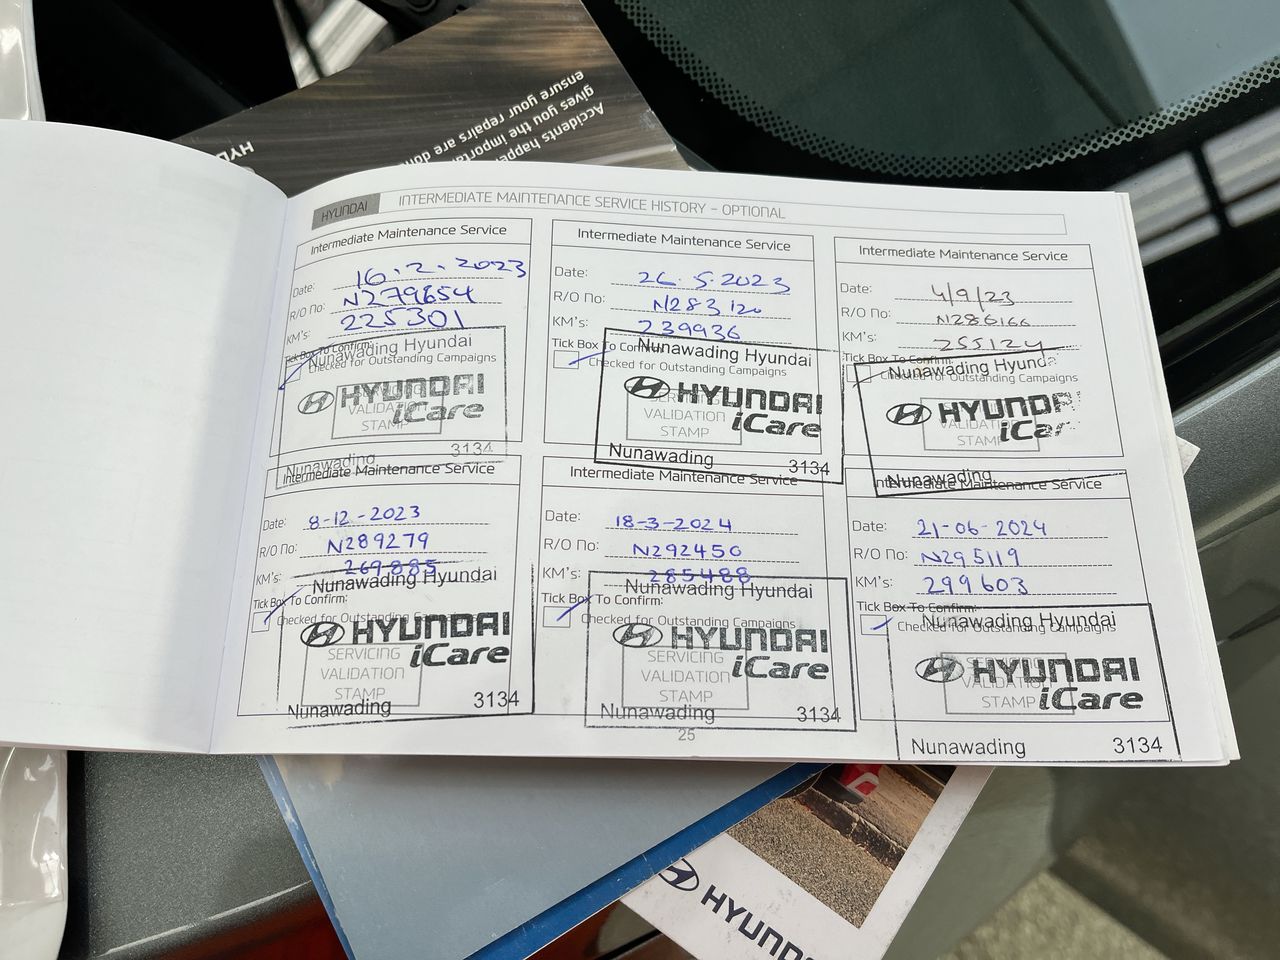 Accidents happe
gives you the importa
ensure your repairs are don
HYU
HYUNDAI
INTERMEDIATE MAINTENANCE SERVICE HISTORY – OPTIONAL
Intermediate Maintenance Service
Date: 16.2.2023
R/O No: N279654
KM's: 225301
Tick Box To Confirm:
Checked for Outstanding Campaigns
Nunawading Hyundai
HYUNDAI
iCare
VALIDATION
STAMP
Nunawading 3134
Intermediate Maintenance Service
Date: 26.5.2023
R/O No: N283120
KM's: 239936
Tick Box To Confirm:
Checked for Outstanding Campaigns
Nunawading Hyundai
HYUNDAI
iCare
SERVICING
VALIDATION
STAMP
Nunawading 3134
Intermediate Maintenance Service
Date: 4/9/23
R/O No: N286166
KM's: 255124
Tick Box To Confirm:
Checked for Outstanding Campaigns
Nunawading Hyunda
HYUNDAI
iCar
VALIDATION
STAMP
Nunawading
Intermediate Maintenance Service
Date: 8-12-2023
R/O No: N289279
KM's: 269885
Tick Box To Confirm:
Checked for Outstanding Campaigns
Nunawading Hyundai
HYUNDAI
iCare
SERVICING
VALIDATION
STAMP
Nunawading 3134
Intermediate Maintenance Service
Date: 18-3-2024
R/O No: N292450
KM's: 285488
Tick Box To Confirm:
Checked for Outstanding Campaigns
Nunawading Hyundai
HYUNDAI
iCare
SERVICING
VALIDATION
STAMP
Nunawading 3134
Intermediate Maintenance Service
Date: 21-06-2024
R/O No: N295119
KM's: 299603
Tick Box To Confirm:
Checked for Outstanding Campaigns
Nunawading Hyundai
HYUNDAI
iCare
SERVICING
VALIDATION
STAMP
Nunawading 3134
25
HYUND